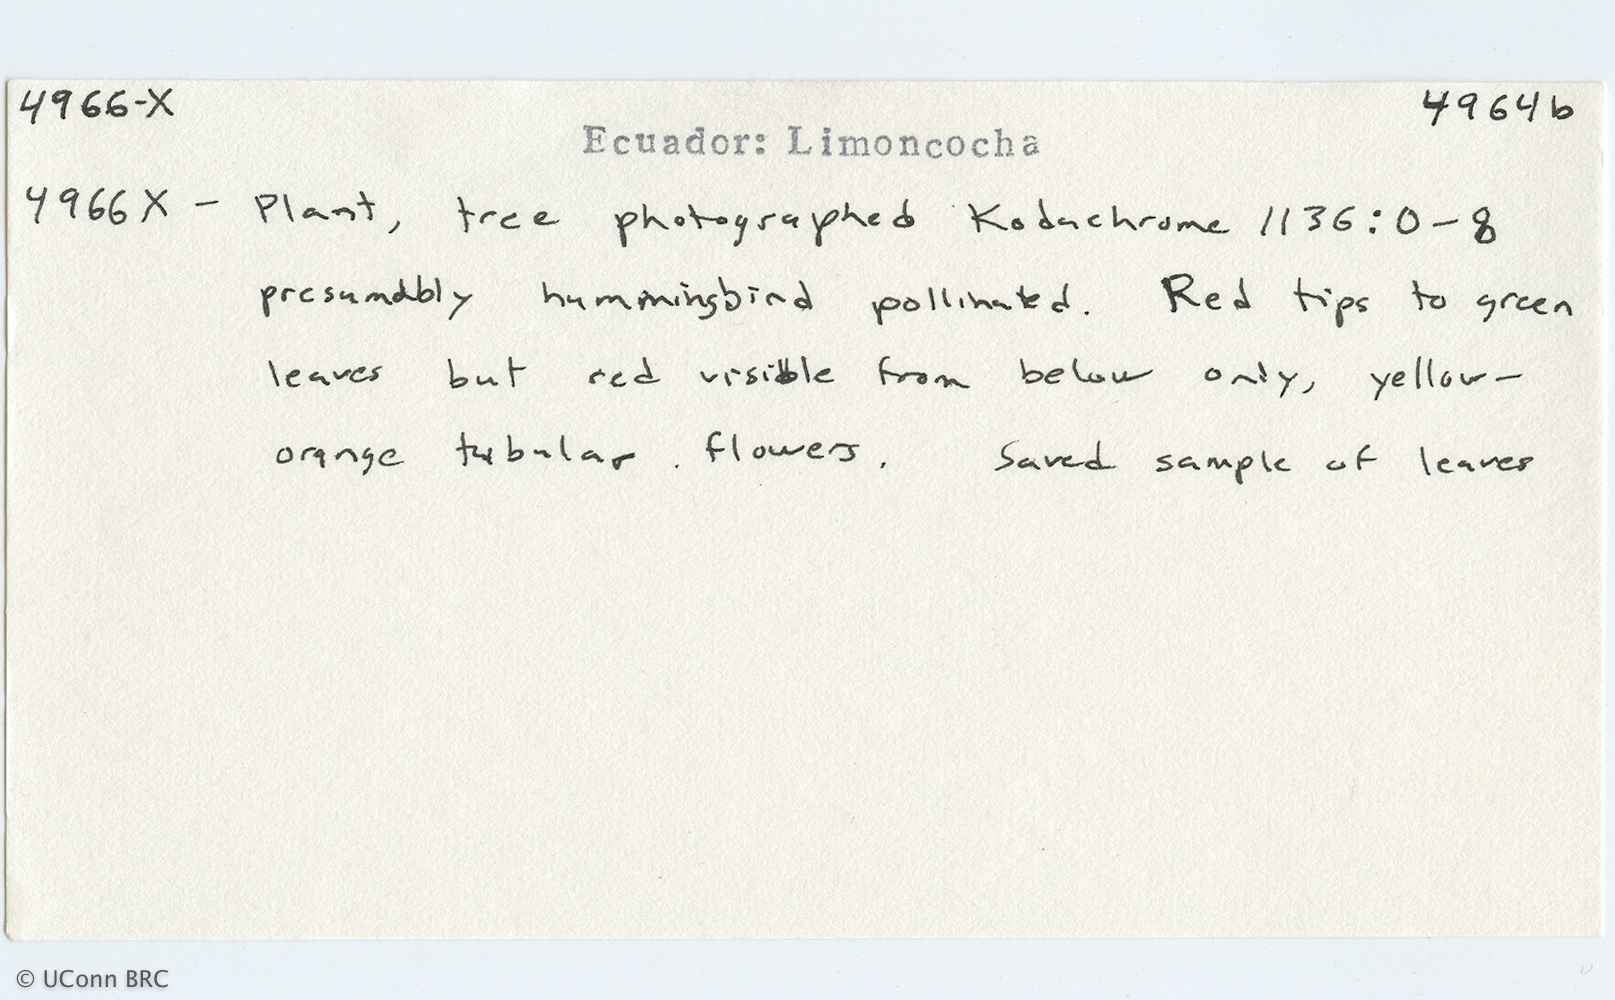 4966-X 4964b
Ecuador: Limoncocha
4966X - Plant, tree photographed Kodachrome 1136:0-8
presumably hummingbird pollinated. Red tips to green
leaves but red visible from below only, yellow-
orange tubular flowers. Saved sample of leaves
© UConn BRC